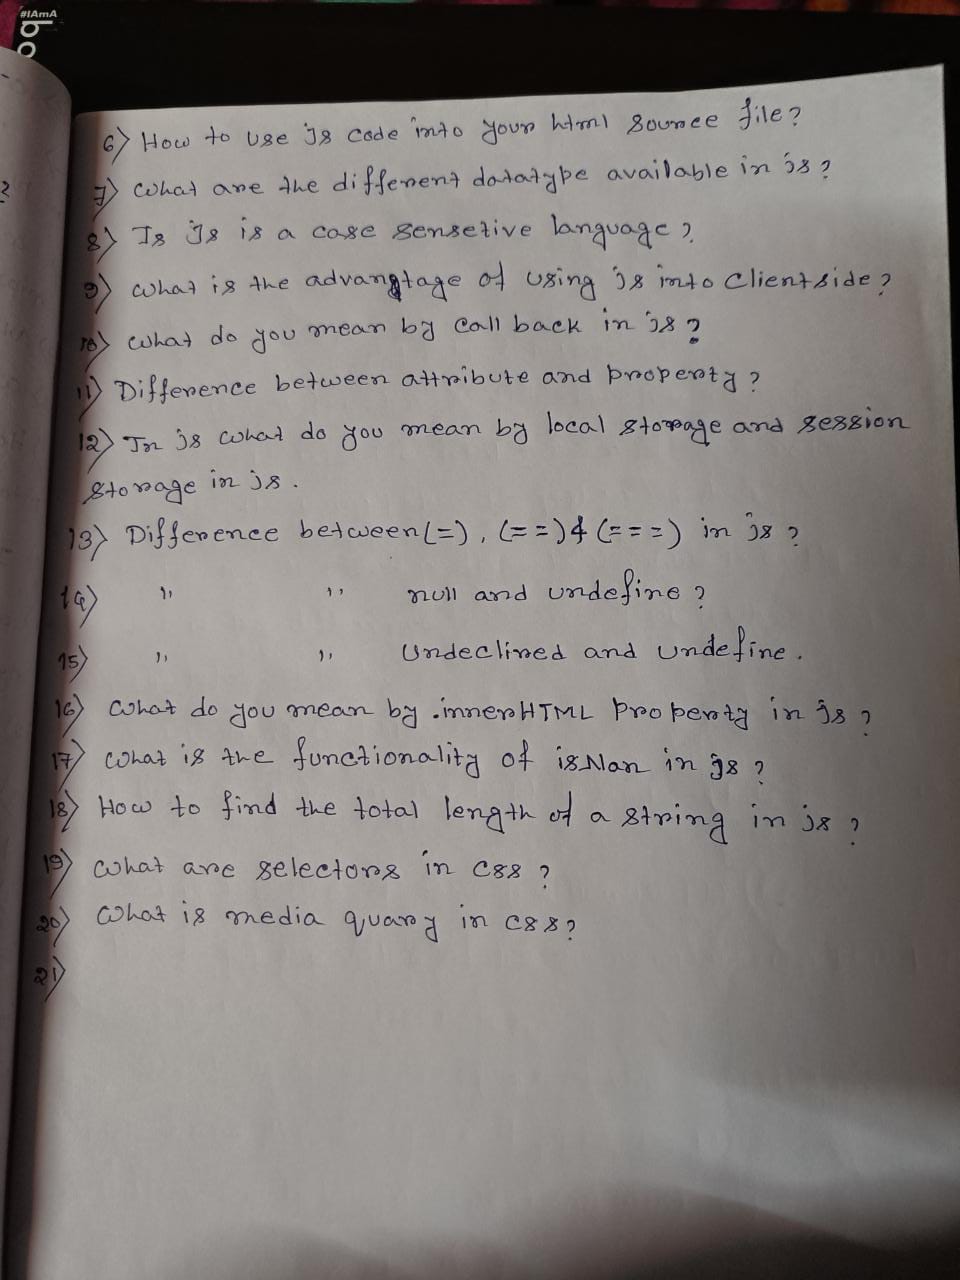 #IAmA
6) How to use Js code into your html source file?
7) What are the different datatype available in js?
8) Is Js is a case sensetive language?
9) What is the advangtage of using js into Client side?
10) What do you mean by Call back in js?
11) Difference between attribute and property?
12) In js what do you mean by local storage and session
storage in js.
13) Difference between (=), (==) & (===) in js?
14) " " null and undefine?
15) " " Undeclined and undefine.
16) What do you mean by .innerHTML Property in js?
17) What is the functionality of isNan in js?
18) How to find the total length of a string in js?
19) What are selectors in css?
20) What is media quary in css?
21)